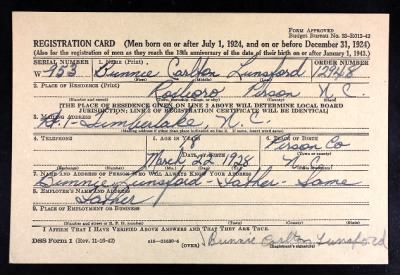 FORM APPROVED
Budget Bureau No. 33-R012-42
REGISTRATION CARD (Men born on or after July 1, 1924, and on or before December 31, 1924)
(Also for the registration of men as they reach the 18th anniversary of the date of their birth on or after January 1, 1943.)
SERIAL NUMBER 1. NAME (Print) ORDER NUMBER
W 953 Bunnie Carlton Lunsford 12948
(First) (Middle) (Last)
2. PLACE OF RESIDENCE (Print)
Roxboro Person N.C.
(Number and street) (Town, township, village, or city) (County) (State)
[THE PLACE OF RESIDENCE GIVEN ON LINE 2 ABOVE WILL DETERMINE LOCAL BOARD
JURISDICTION; LINE 2 OF REGISTRATION CERTIFICATE WILL BE IDENTICAL]
3. MAILING ADDRESS
Rt. 1 Timberlake, N.C.
[Mailing address if other than place indicated on line 2. If same, insert word same]
4. TELEPHONE 5. AGE IN YEARS 6. PLACE OF BIRTH
18 Person Co
DATE OF BIRTH
March 22 1928 N.C.
(Exchange) (Number) (Mo.) (Day) (Yr.) (State or country)
7. NAME AND ADDRESS OF PERSON WHO WILL ALWAYS KNOW YOUR ADDRESS
Lunsford - Father - Same
8. EMPLOYER'S NAME AND ADDRESS
Father
9. PLACE OF EMPLOYMENT OR BUSINESS
(Number and street or R. F. D. number) (Town) (County) (State)
I AFFIRM THAT I HAVE VERIFIED ABOVE ANSWERS AND THAT THEY ARE TRUE.
DSS Form 1 (Rev. 11-16-42) (OVER) Bunnie Carlton Lunsford
(Registrant's signature)